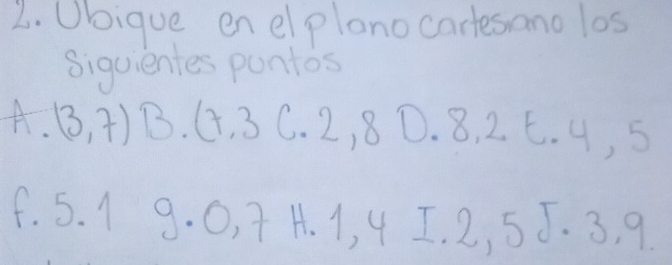 2. Ubique en el plano cartesiano los
Siguientes puntos
A. (3,7) B. (7,3 C. 2,8 D. 8,2 E. 4, 5
f. 5.1 g. 0,7 H. 1,4 I. 2,5 J. 3,9.